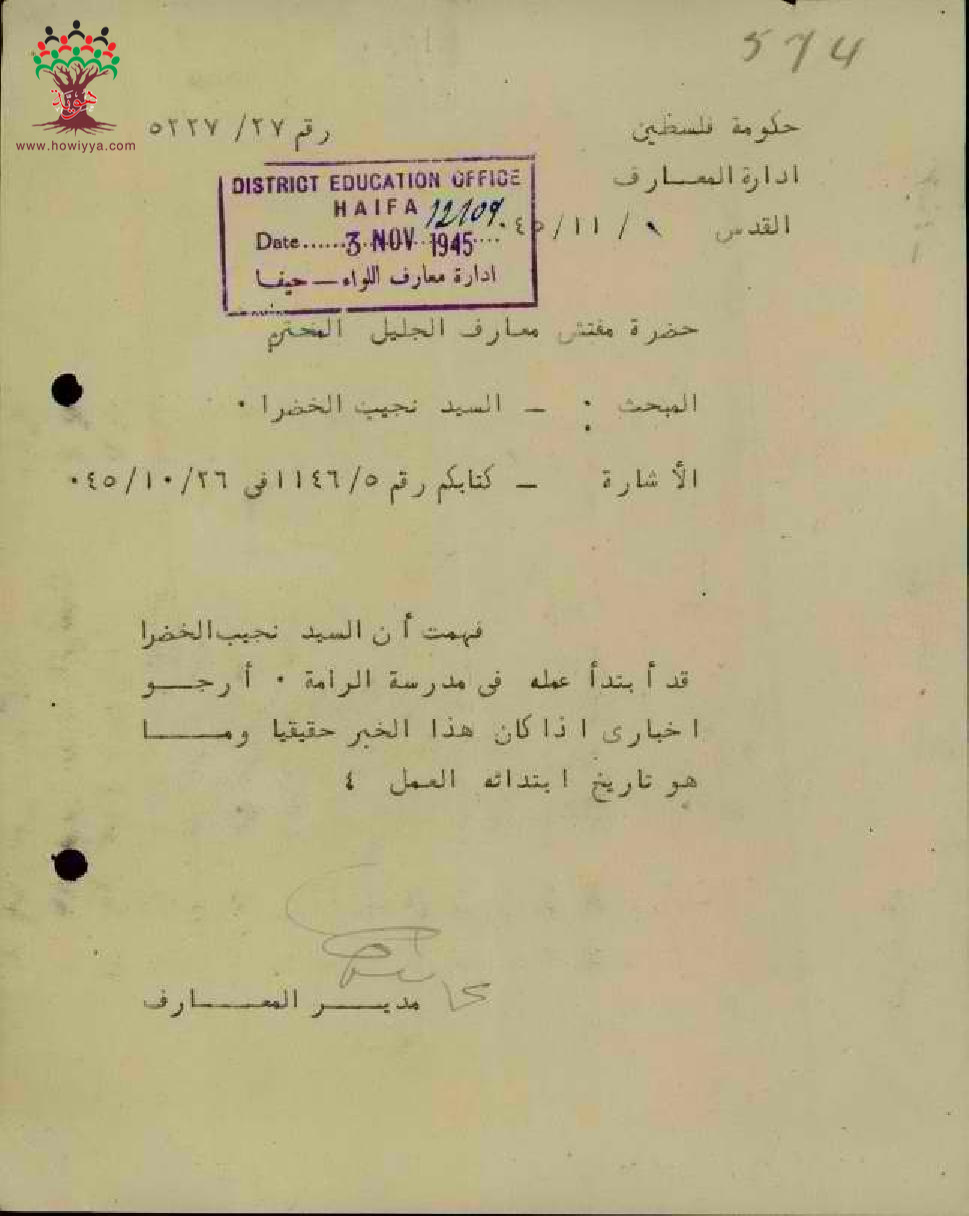 574
هوية
www.howiyya.com
حكومة فلسطين
رقم ٢٧/ ٥٢٢٧
ادارة المعـــارف
القدس ١ / ١١ / ٤٥٠
DISTRICT EDUCATION OFFICE
HAIFA 12109
Date......3 NOV 1945....
ادارة معارف اللواء — حيفا
حضرة مفتش معارف الجليل المحترم
المبحث : ـ السيد نجيب الخضرا ٠
الأشارة ـ كتابكم رقم ١١٤٦/٥ فى ٤٥/١٠/٢٦٠
فهمت أن السيد نجيب الخضرا
قد أبتدأ عمله فى مدرسة الرامة ٠ أرجـــو
اخبارى اذا كان هذا الخبر حقيقيا ومـــا
هو تاريخ ابتدائه العمل ٤
مديـــر المعـــارف